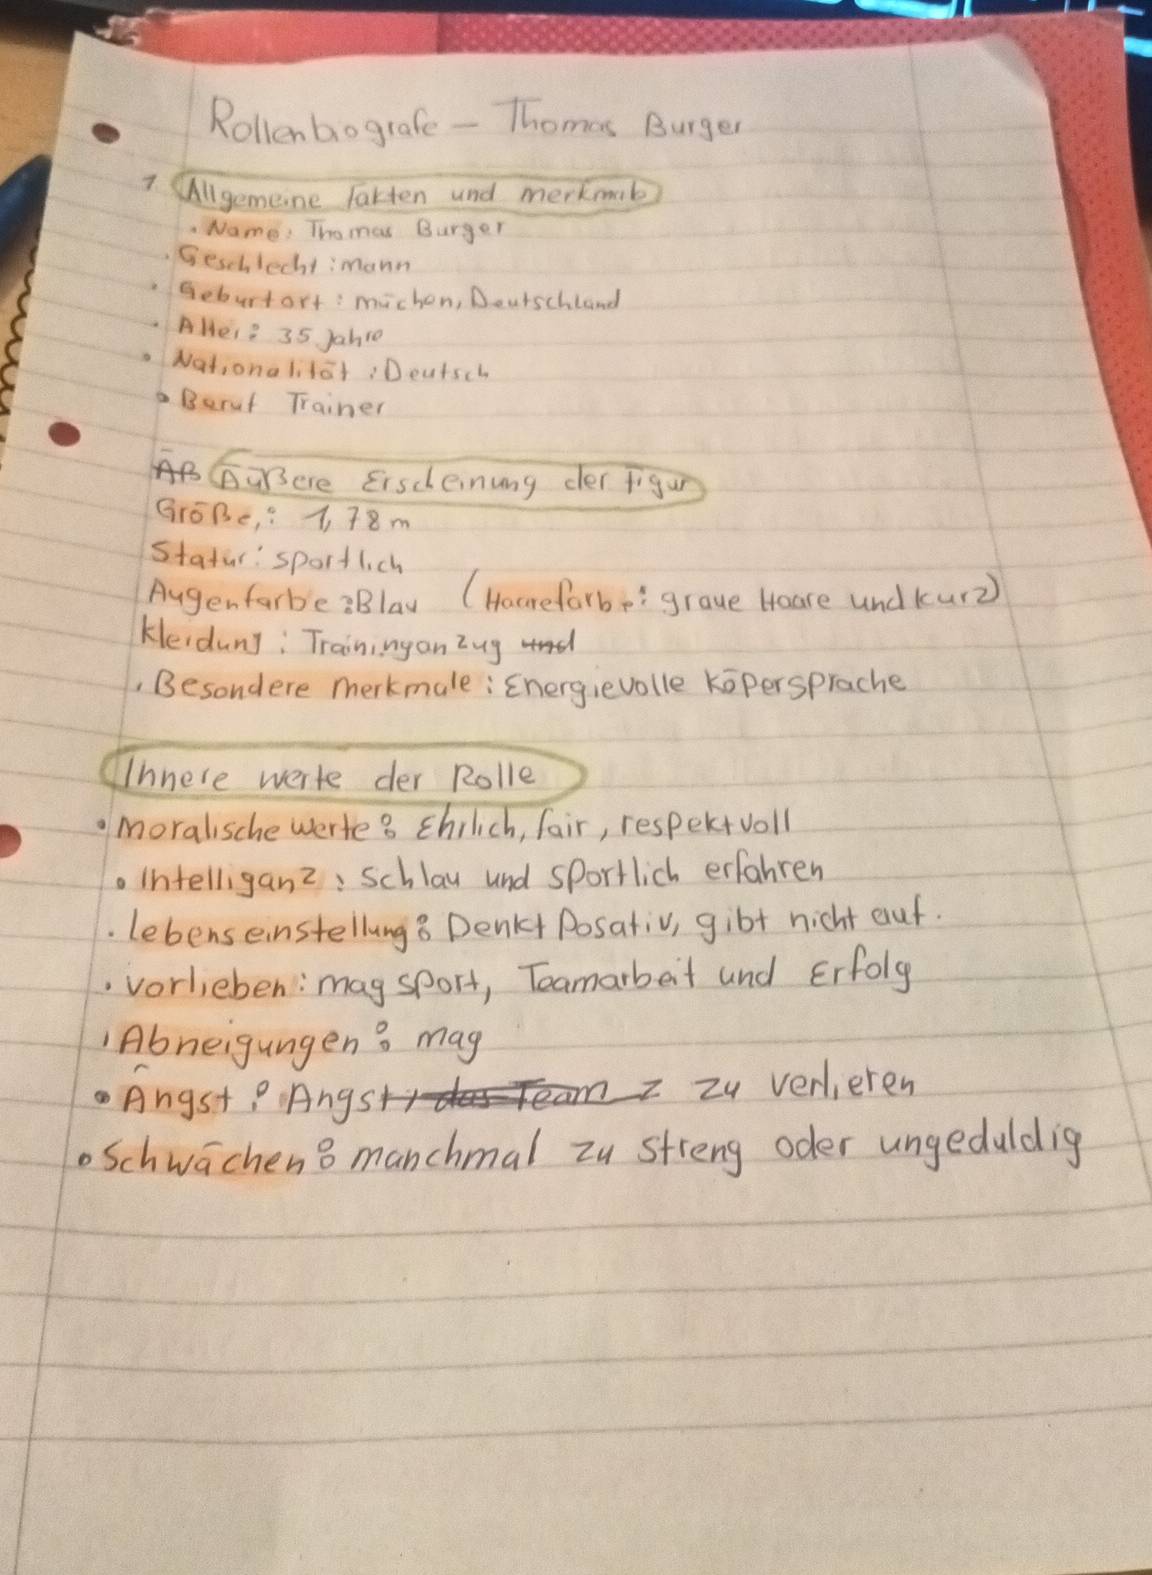 Rollenbiografe – Thomas Burger
1. Allgemeine Fakten und merkmale
• Name: Thomas Burger
• Geschlecht: mann
• Geburtort: müchen, Deutschland
• Alter: 35 Jahre
• Nationalität: Deutsch
• Beruf Trainer
ÄB Äußere Erscheinung der Figur
Größe,: 1,78 m
Statur: sportlich
Augenfarbe: Blau (Haarefarbe: graue Haare und kurz)
kleidung: Trainingan zug und
• Besondere merkmale: Energievolle Köpersprache
Innere werte der Rolle
• moralische werte: Ehrlich, fair, respektvoll
• Intelliganz: Schlau und sportlich erfahren
• lebenseinstellung: Denkt Posativ, gibt nicht auf.
• vorlieben: mag sport, Teamarbeit und Erfolg
• Abneigungen: mag
• Angst: Angst, das Team z zu verlieren
• Schwächen: manchmal zu streng oder ungeduldig